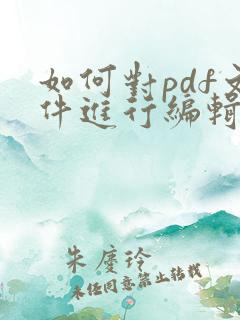 如何對pdf文
件進行編輯
朱慶玲
未經同意禁止轉載